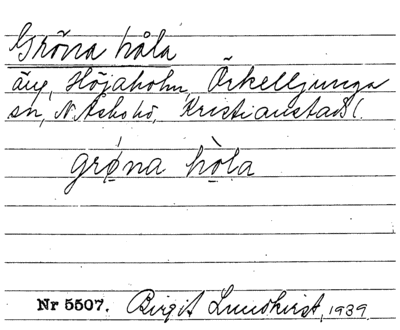 Gröna håla
äng, Höjaholm, Örkelljunga
sn, N. Åsbo hd, Kristianstads l.
grǿna hòla
Nr 5507. Birgit Lundkvist, 1939.